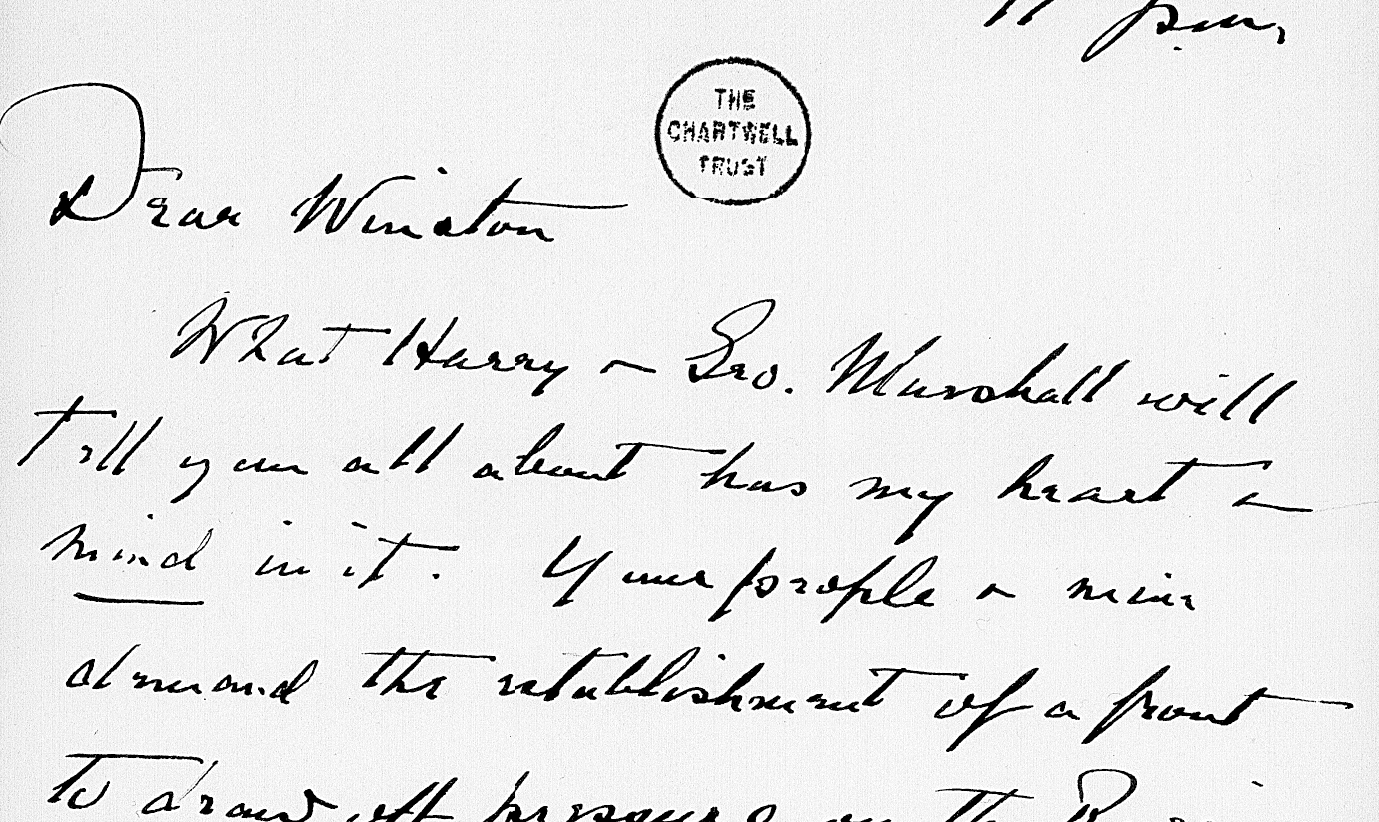 11 p.m.
THE
CHARTWELL
TRUST
Dear Winston
What Harry & Geo. Marshall will
tell you all about has my heart &
mind in it. Your people & mine
demand the establishment of a front
to draw off pressure on the